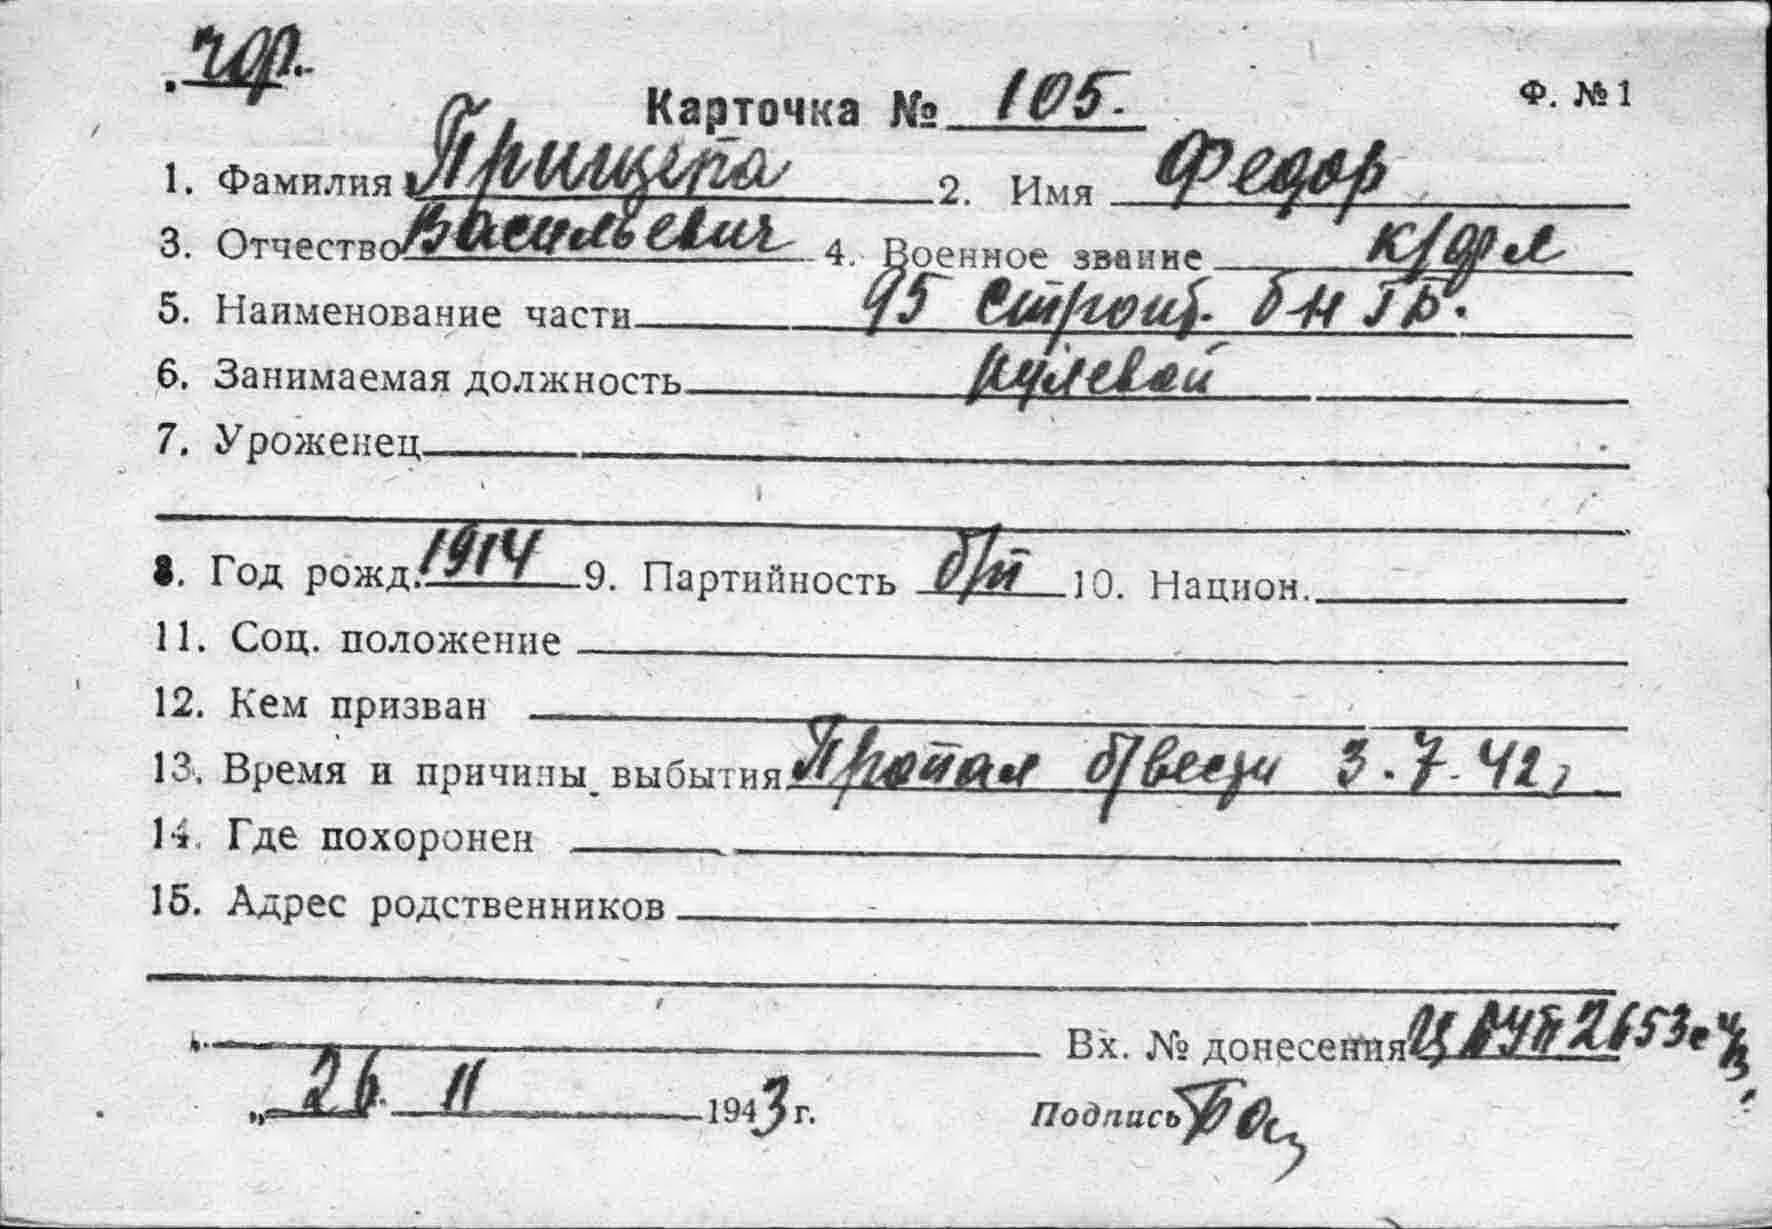 чф.
Карточка № 105. Ф. № 1
1. Фамилия Прищепа 2. Имя Федор
3. Отчество Васильевич 4. Военное звание к/фл
5. Наименование части 95 строит. б-н ГБ.
6. Занимаемая должность рулевой
7. Уроженец
8. Год рожд. 1914 9. Партийность б/п 10. Национ.
11. Соц. положение
12. Кем призван
13. Время и причины выбытия Пропал б/вести 3.7.42 г
14. Где похоронен
15. Адрес родственников
Вх. № донесения 2653с
„ 26. 11 1943 г. Подпись